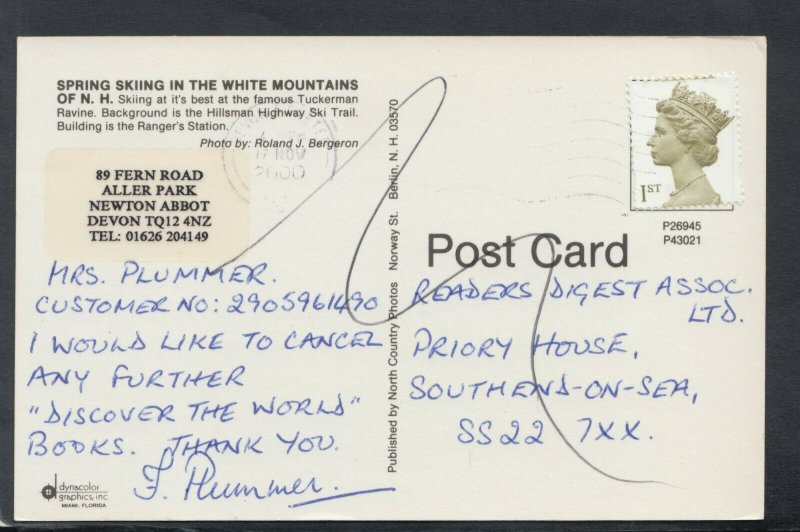 SPRING SKIING IN THE WHITE MOUNTAINS
OF N. H. Skiing at it's best at the famous Tuckerman
Ravine. Background is the Hillsman Highway Ski Trail.
Building is the Ranger's Station.
Photo by: Roland J. Bergeron
17 NOV
2000
89 FERN ROAD
ALLER PARK
NEWTON ABBOT
DEVON TQ12 4NZ
TEL: 01626 204149
MRS. PLUMMER.
CUSTOMER NO: 2905961490
I WOULD LIKE TO CANCEL
ANY FURTHER
"DISCOVER THE WORLD"
BOOKS. THANK YOU.
F. Plummer.
dynacolor
graphics, inc.
MIAMI, FLORIDA
Published by North Country Photos Norway St. Berlin, N. H. 03570
1ST
P26945
P43021
Post Card
READERS DIGEST ASSOC.
LTD.
PRIORY HOUSE,
SOUTHEND-ON-SEA,
SS22 7XX.